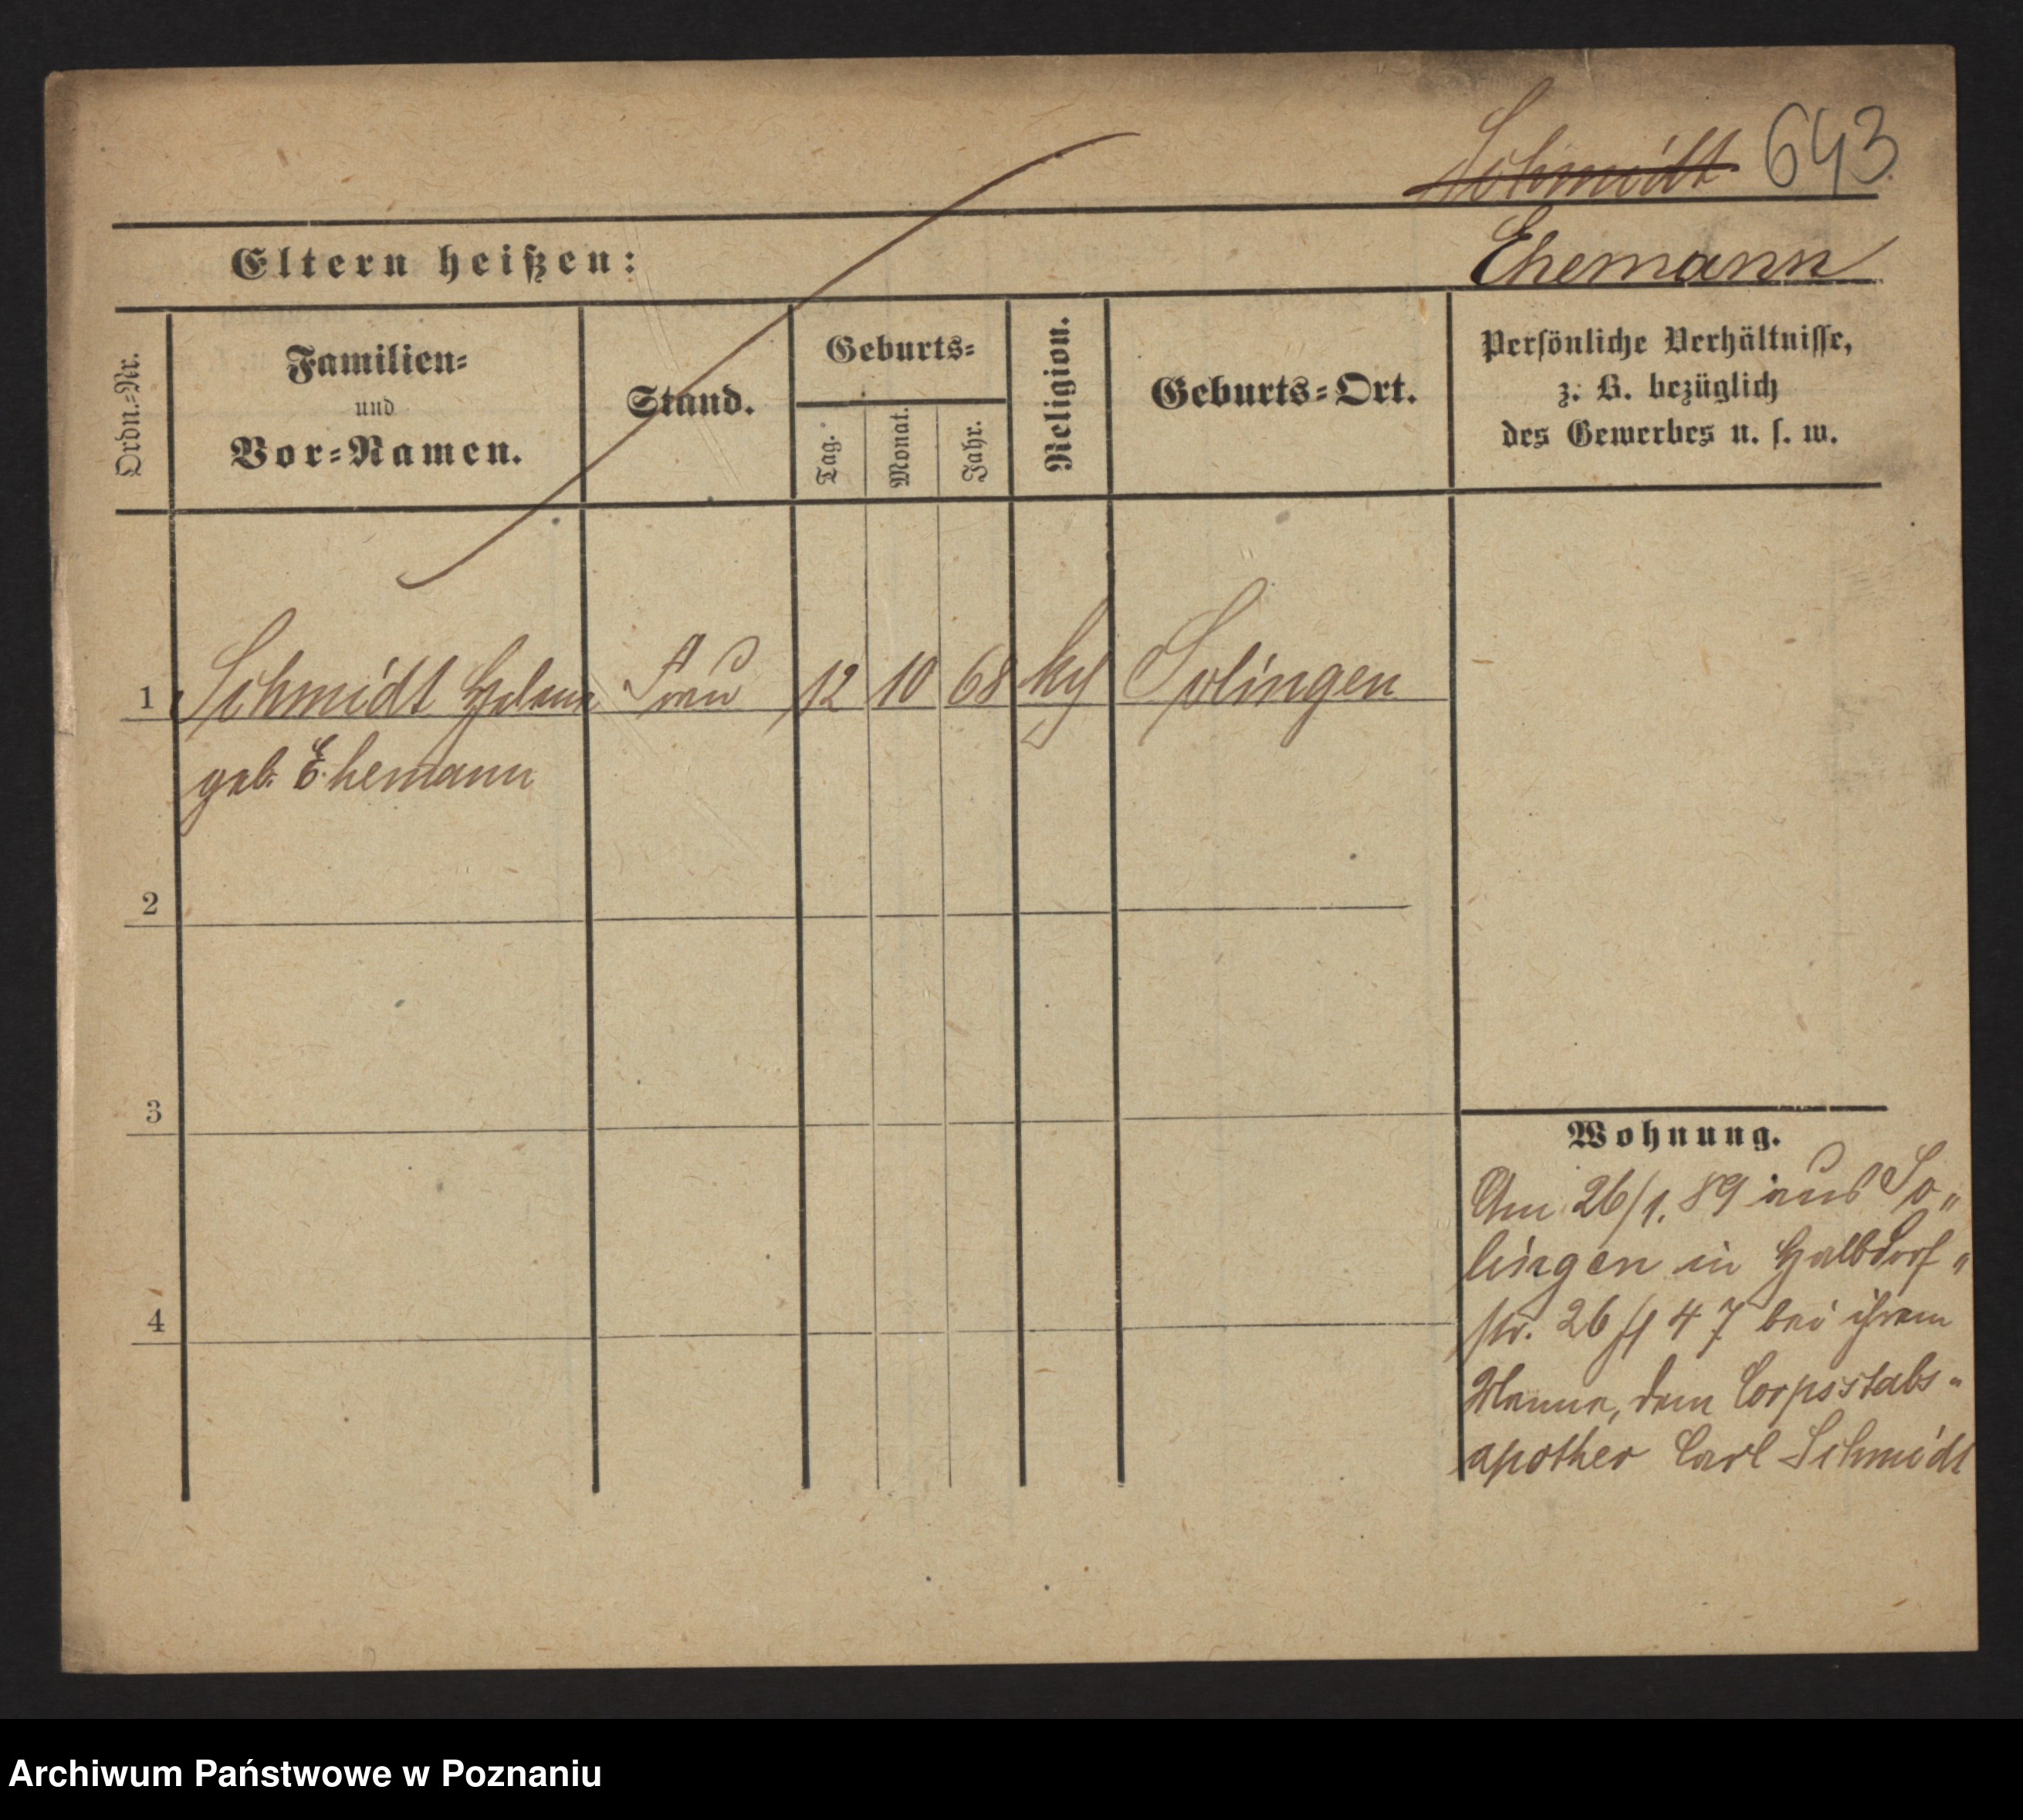 Schmidt 643.
Ehemann
Eltern heißen:
Ordn.-Nr.
Familien-
und
Vor-Namen.
Stand.
Geburts-
Tag.
Monat.
Jahr.
Religion.
Geburts-Ort.
Persönliche Verhältnisse,
z. B. bezüglich
des Gewerbes u. s. w.
1 Schmidt Helene Frau 12 10 68 Solingen
geb. Ehemann
2
3
4
Wohnung.
Am 26/1. 89 aus So„
lingen in Halbdorf„
str. 26 47 bei ihrem
Manne, dem Corpsstabs-
apother Carl Schmidt
Archiwum Państwowe w Poznaniu